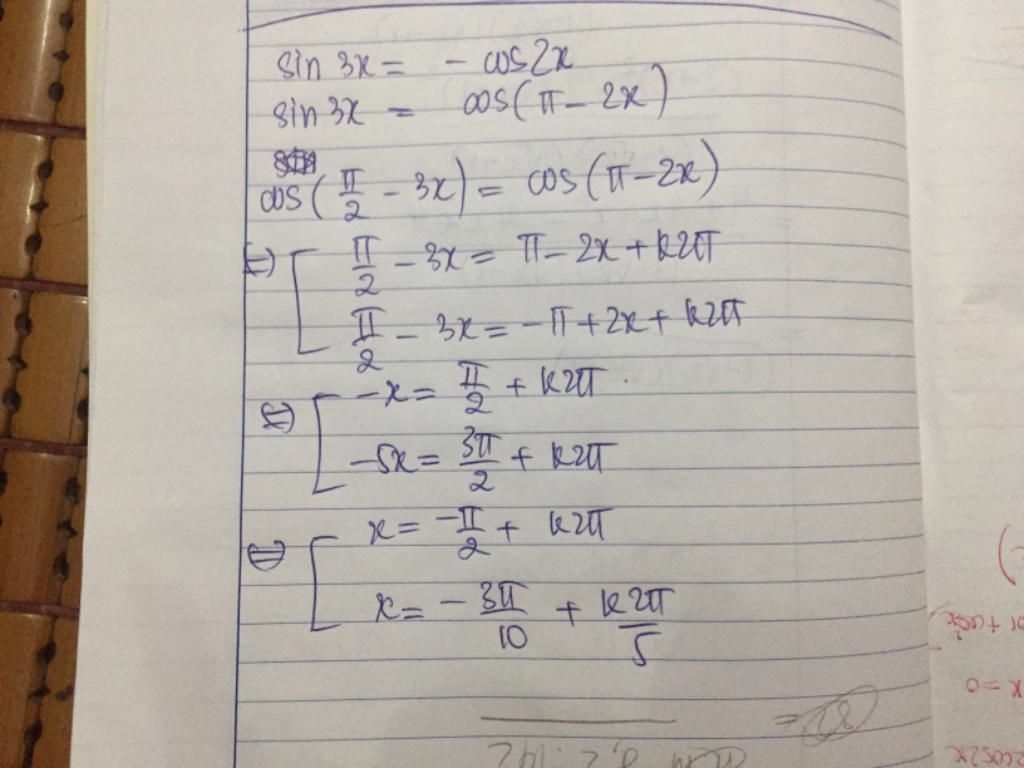 sin 3x = - cos2x
sin 3x = cos(π - 2x)
cos(π/2 - 3x) = cos(π - 2x)
⇔ [ π/2 - 3x = π - 2x + k2π
π/2 - 3x = -π + 2x + k2π
⇔ [ -x = π/2 + k2π
-5x = 3π/2 + k2π
⇔ [ x = -π/2 + k2π
x = - 3π/10 + k2π/5